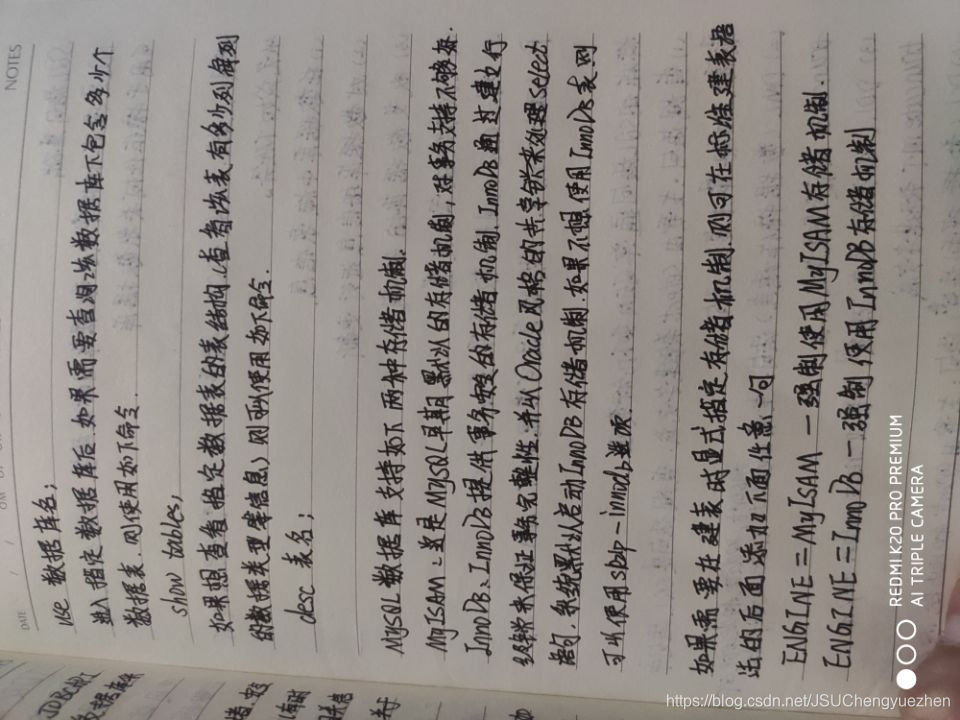 NOTES
DATE
use 数据库名;
进入指定数据库后,如果需要查询该数据库下包含多少个
数据表,则使用如下命令.
show tables;
如果想查看指定数据表的表结构(查看该表有多少列,每列
的数据类型等信息),则可以使用如下命令.
desc 表名;
MySQL数据库支持如下两种存储机制.
MyISAM:这是MySQL早期默认的存储机制,对事务支持不够好.
InnoDB:InnoDB提供事务安全的存储机制.InnoDB通过建立行
级锁来保证事务完整性,并以Oracle风格的共享锁来处理Select
语句.系统默认启动InnoDB存储机制.如果不想使用InnoDB表,则
可以使用skip-innodb选项.
如果需要在建表时显式指定存储机制.则可在标准建表语
法的后面添加下面任意一句
ENGINE=MyISAM — 强制使用MyISAM存储机制.
ENGINE=InnoDB — 强制使用InnoDB存储机制
REDMI K20 PRO PREMIUM
AI TRIPLE CAMERA
https://blog.csdn.net/JSUChengyuezhen